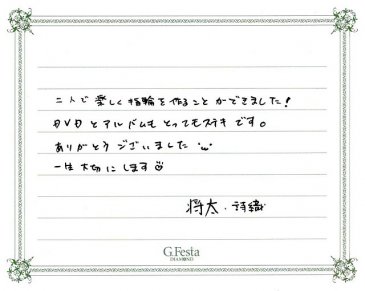 二人で楽しく指輪を作ることができました!
DVDとアルバムもとってもステキです。
ありがとうございました
一生大切にします
将太・詩織
G.Festa
DIAMOND